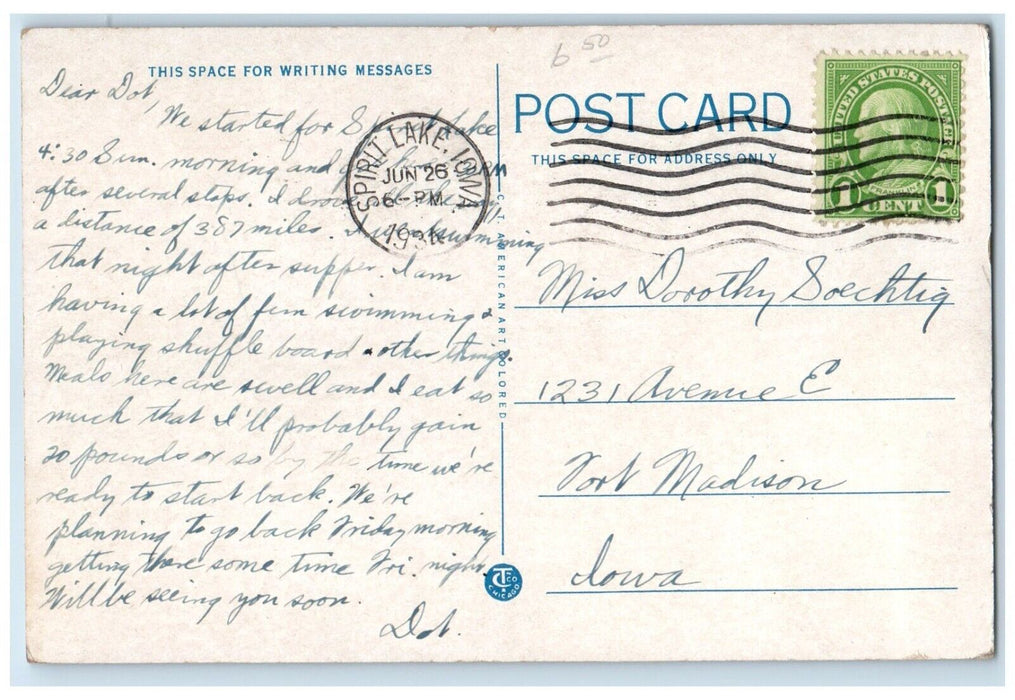 6 50
THIS SPACE FOR WRITING MESSAGES
Dear Dot,
We started for Spirit Lake
4:30 Sun. morning and
after several stops. I drove
a distance of 387 miles. swimming
that night after supper. I am
having a lot of fun swimming &
playing shuffle board & other things.
Meals here are swell and I eat so
much that I'll probably gain
20 pounds or so by the time we're
ready to start back. We're
planning to go back Friday morning
getting there some time Fri. night
Will be seeing you soon.
Dot.
SPIRIT LAKE, IOWA
JUN 26
6-PM
C.T. AMERICAN ART COLORED
CTCO CHICAGO
POST CARD
THIS SPACE FOR ADDRESS ONLY
UNITED STATES POSTAGE
FRANKLIN
1 CENT 1
Miss Dorothy Soechtig
1231 Avenue E
Fort Madison
Iowa